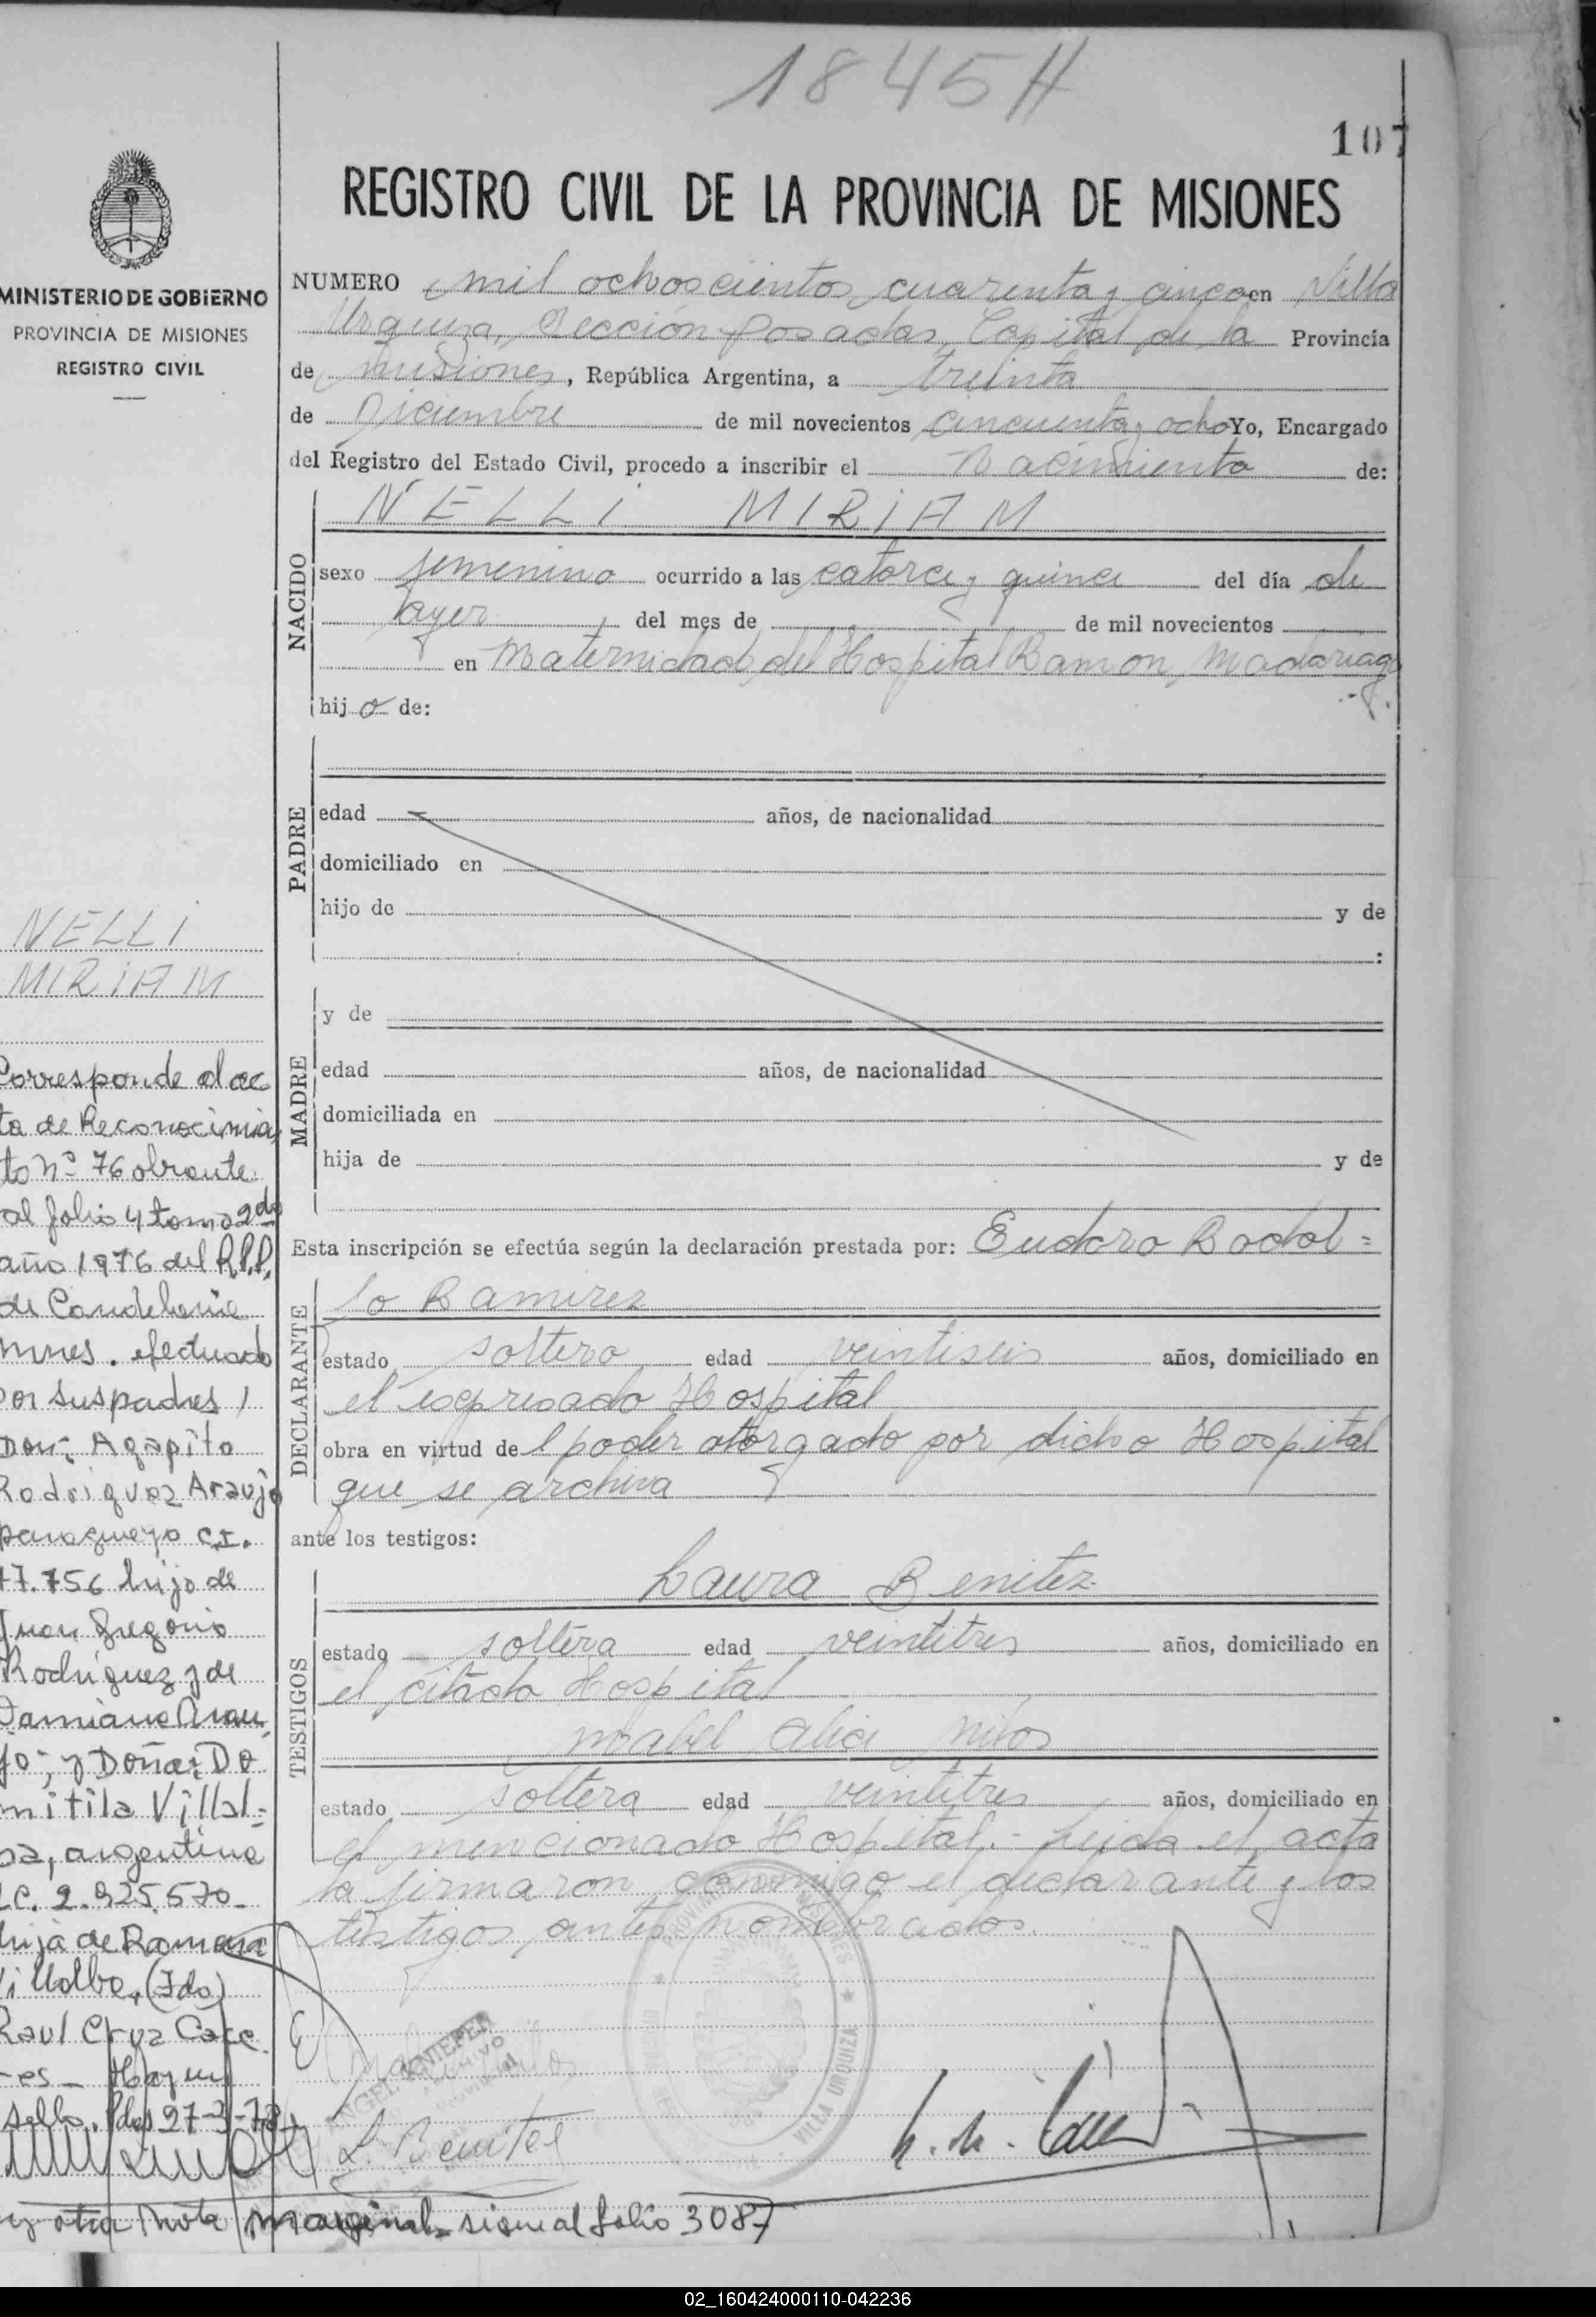 1845H
107
REGISTRO CIVIL DE LA PROVINCIA DE MISIONES
MINISTERIO DE GOBIERNO
PROVINCIA DE MISIONES
REGISTRO CIVIL
NUMERO mil ochoscientos cuarenta y cinco en Villa
Urquiza, Sección Posadas, Capital de la Provincia
de Misiones, República Argentina, a treinta
de Diciembre de mil novecientos cincuenta y ocho Yo, Encargado
del Registro del Estado Civil, procedo a inscribir el Nacimiento de:
NELLI MIRIAM
NACIDO
sexo femenino ocurrido a las catorce y quince del día de
ayer del mes de de mil novecientos
en Maternidad del Hospital Ramon Madariaga
hij o de:
PADRE
edad años, de nacionalidad
domiciliado en
hijo de y de
:
MADRE
y de
edad años, de nacionalidad
domiciliada en
hija de y de
Esta inscripción se efectúa según la declaración prestada por: Eudoro Rodol=
fo Ramirez
DECLARANTE
estado soltero edad veintiseis años, domiciliado en
el expresado Hospital
obra en virtud del poder otorgado por dicho Hospital
que se archiva
ante los testigos:
Laura Benitez
TESTIGOS
estado soltera edad veintitres años, domiciliado en
el citado Hospital
Mabel Alici
estado soltera edad veintitres años, domiciliado en
el mencionado Hospital.- Leida el acta
la firmaron conmigo el declarante y los
testigos antes nombrados.
PROVINCIA DE MISIONES
VILLA URQUIZA
ARCHIVO
L. Benitez
NELLI
MIRIAM
Corresponde al ac
ta de Reconocimien
to Nº 76 obrante
al folio 4 tomo 2do
año 1976 del R.P.P.
de Candelaria
Mnes. efectuado
por sus padres /
Don: Agapito
Rodriguez Araujo
paraguayo C.I.
17.756 hijo de
Juan Gregorio
Rodriguez y de
Damiana Arau
jo; y Doña: Do
mitila Villal=
ba, argentina
L.C. 2.925.570
hija de Ramona
Villalba, (Fdo)
Raul Cruz Cace
res - Hay un
sello. Pdas 27-3-78
y otra Nota Marginal sigue al folio 3087
02_160424000110-042236